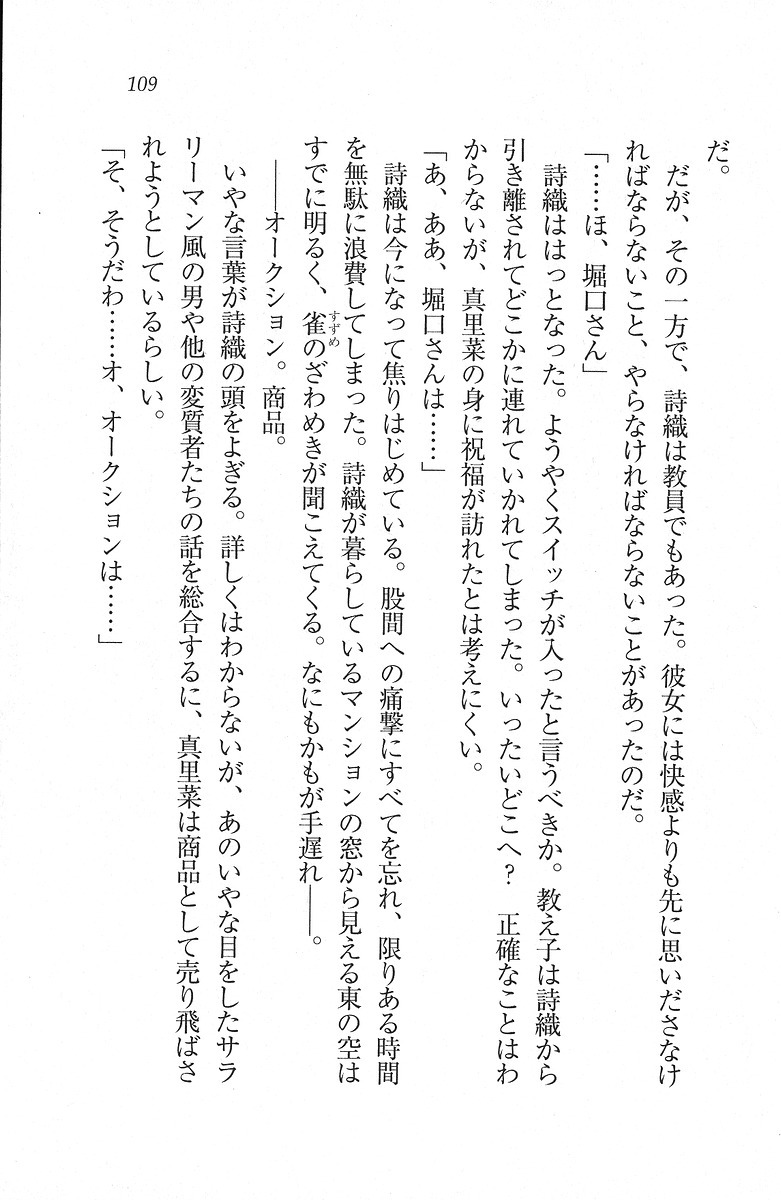 109
だ。
　だが、その一方で、詩織は教員でもあった。彼女には快感よりも先に思いださなけ
ればならないこと、やらなければならないことがあったのだ。
「……ほ、堀口さん」
　詩織ははっとなった。ようやくスイッチが入ったと言うべきか。教え子は詩織から
引き離されてどこかに連れていかれてしまった。いったいどこへ？　正確なことはわ
からないが、真里菜の身に祝福が訪れたとは考えにくい。
「あ、ああ、堀口さんは……」
　詩織は今になって焦りはじめている。股間への痛撃にすべてを忘れ、限りある時間
を無駄に浪費してしまった。詩織が暮らしているマンションの窓から見える東の空は
すでに明るく、雀すずめのざわめきが聞こえてくる。なにもかもが手遅れ――。
　――オークション。商品。
　いやな言葉が詩織の頭をよぎる。詳しくはわからないが、あのいやな目をしたサラ
リーマン風の男や他の変質者たちの話を総合するに、真里菜は商品として売り飛ばさ
れようとしているらしい。
「そ、そうだわ……オ、オークションは……」